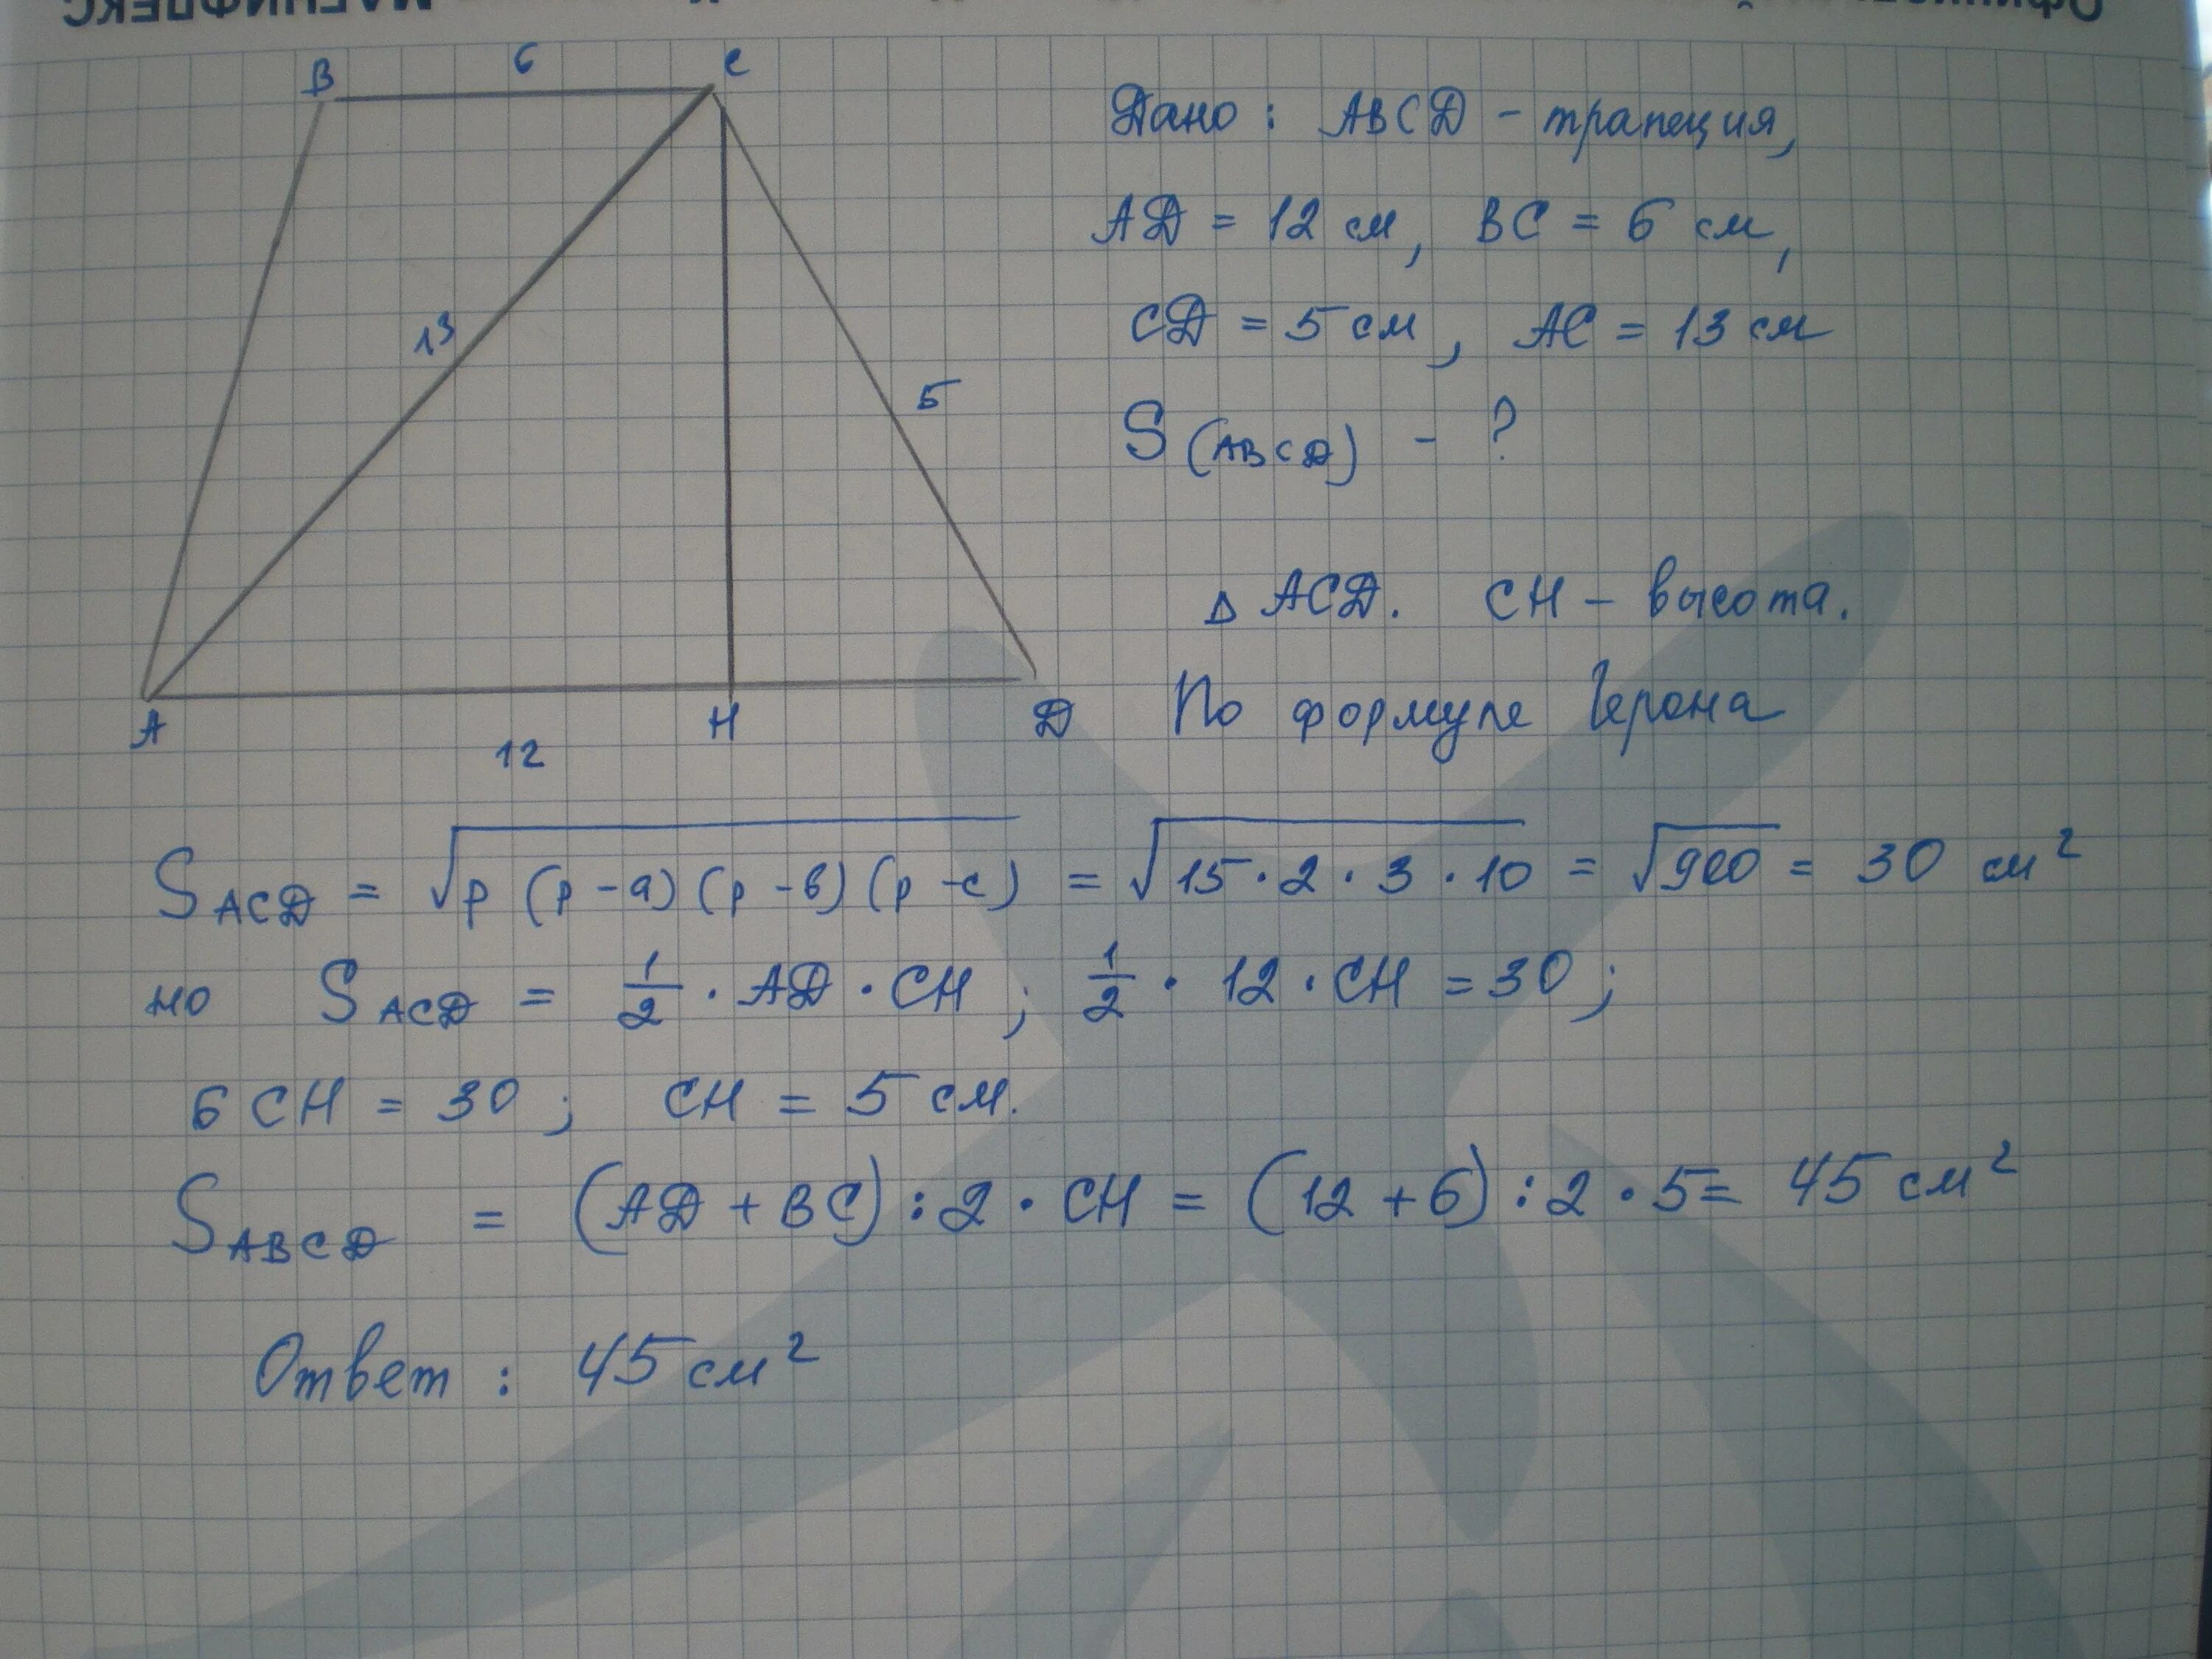 В 6 С
Дано: ABCD - трапеция,
AD = 12 см, BC = 6 см,
13
CD = 5 см, AC = 13 см
5
S (ABCD) - ?
Δ ACD. CH - высота.
A H D
По формуле Герона
12
S ACD = √p (p - a) (p - в) (p - c) = √15 · 2 · 3 · 10 = √900 = 30 см²
но S ACD = 1/2 · AD · CH ; 1/2 · 12 · CH = 30 ;
6 CH = 30 ; CH = 5 см.
S ABCD = (AD + BC) : 2 · CH = (12 + 6) : 2 · 5 = 45 см²
Ответ : 45 см²